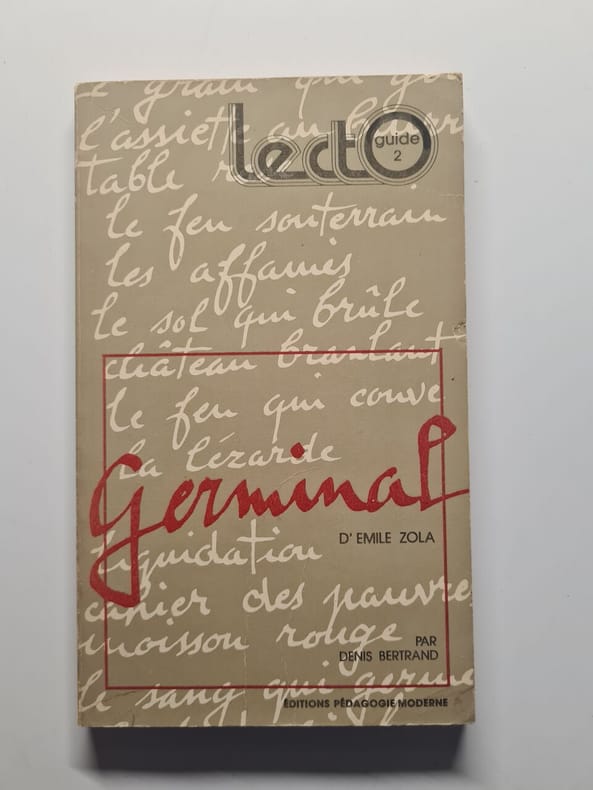 le grain qui ge
l'assiette au beurre
table r
lectO
guide
2
le feu souterrain
les affamés
le sol qui brûle
château branlant
le feu qui couve
la lézarde
Germinal
D'EMILE ZOLA
liquidation
cahier des pauvres
moisson rouge
PAR
DENIS BERTRAND
le sang qui germe
ÉDITIONS PÉDAGOGIE MODERNE